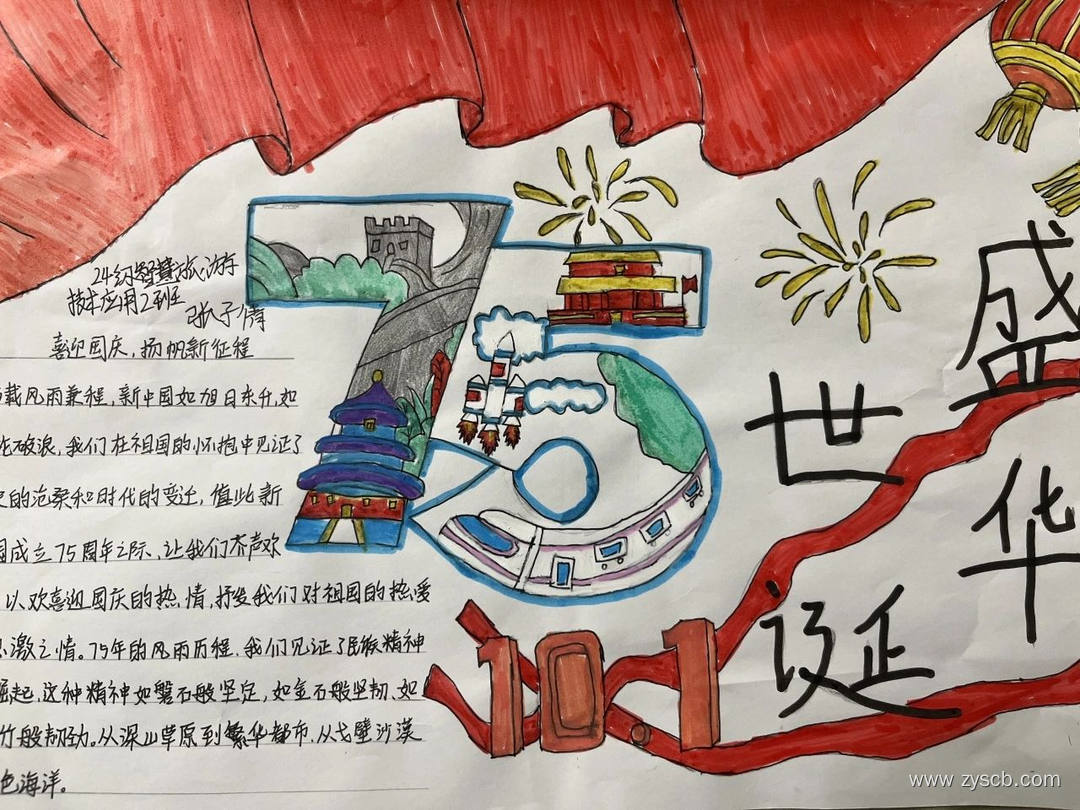 24级智慧旅游
技术应用2班
张子倩
喜迎国庆，扬帆新征程
载风雨兼程，新中国如旭日东升，如
破浪，我们在祖国的怀抱中见证了
的沧桑和时代的变迁，值此新
国成立75周年之际，让我们齐声欢
以欢喜迎国庆的热情，抒发我们对祖国的热爱
激之情。75年的风雨历程，我们见证了民族精神
崛起，这种精神如磐石般坚定，如金石般坚韧，如
竹般韧劲。从深山草原到繁华都市，从戈壁沙漠
色海洋。
75
10.1
盛世华诞
www.zyscb.com